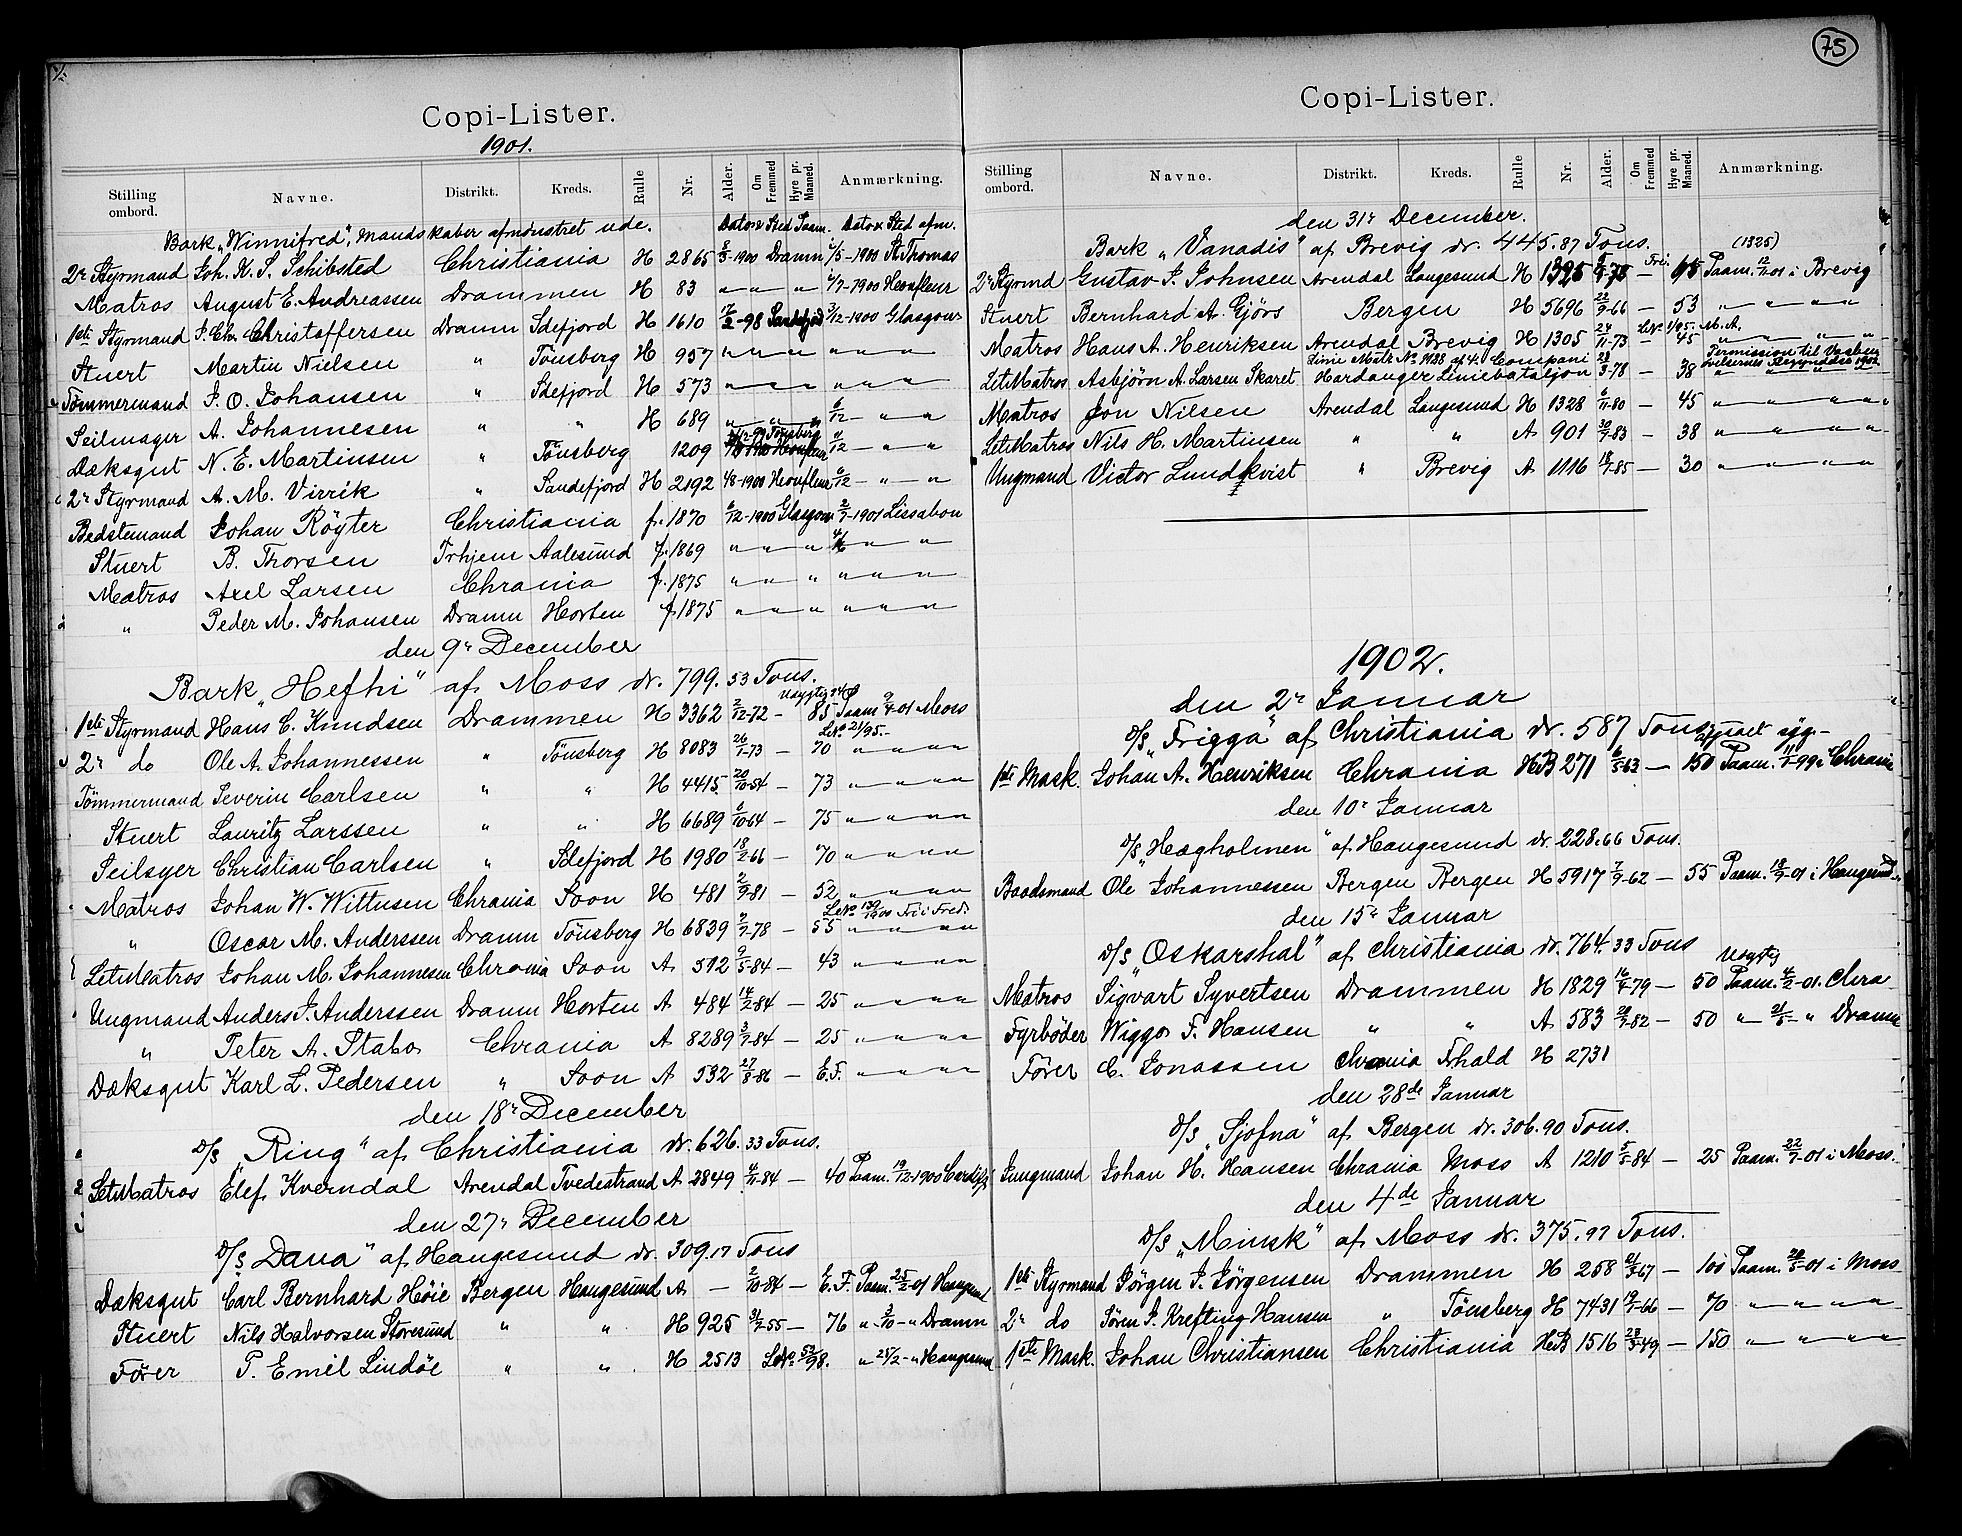 75
Copi-Lister.
1901.
Stilling ombord. Navne. Distrikt. Kreds. Rulle Nr. Alder. Om Fremmed Hyre pr. Maaned. Anmærkning.
Bark „Winnifred", Mandskaber afmönstret ude. Dato & Sted Paam. Dato & Sted afm.
2n Styrmand Joh. K. S. Schibsted Christiania H 2865 Dramn St Thomas
Matros August E. Andreassen Drammen H 83 " " " 1900 Honfleur
1ste Styrmand J. Chr. Christoffersen Dramn Sdefjord H 1610 17/2-98 Sandefjord 3/12-1900 Glasgow
Stuert Martin Nielsen " Tönsberg H 957 " " " " " "
Tømmermand J. O. Johansen " Sdefjord H 573 " " " " " "
Seilmager A. Johannesen " " H 689 " " " 6/12 - " "
Dæksgut N. E. Martinsen " Tönsberg 1209 Tönsberg 6/12 - " "
2n Styrmand A. M. Virrik " Sandefjord H 2192 4/8-1900 Honfleur 6/12 - " "
Bedstemand Johan Röyter Christiania f. 1870 6/12-1900 Glasgow 2/7-1901 Lissabon
Stuert B. Thorsen Trhjem Aalesund f. 1869 " " " " "
Matros Axel Larsen Chrania f. 1875 " " " " " "
" Peder M. Johansen Dramn Horten f 1875 " " " " " "
den 9n December
Bark „Hefhi" af Moss dr. 799.53 Tons.
1ste Styrmand Hans C. Knudsen Drammen H 3362 2/12-72 - 85 Paam 9/4-01 Moss
2n do Ole A. Johannessen " Tönsberg H 8083 26/1-73 - 70 " " " "
Tömmermand Severin Carlsen " " H 4415 20/10-54 - 73 " " " "
Stuert Lauritz Larssen " " H 6689 6/10-64 - 75 " " " "
Seilsyer Christian Carlsen " Sdefjord H 1980 18/2-66 - 70 " " " "
Matros Johan W. Wittusen Chrania Soon H 481 2/9-81 - 52 " " " "
" Oscar M. Anderssen Dramn Tönsberg H 6839 2/7-78 - 55 " " " "
LetMatros Johan M. Johannesen Chrania Soon A 512 9/5-84 - 43 " " " "
Ungmand Anders J. Anderssen Dramn Horten A 484 14/2-84 - 25 " " " "
" Peter A. Stabo Chrania A 8289 3/7-84 - 25 " " " "
Dæksgut Karl L. Pedersen " Soon A 532 27/8-86 - E.F. " " " "
den 18n December
D/S „Ring" af Christiania dr. 626.33 Tons.
LetMatros Elef Kverndal Arendal Tvedestrand A 2849 4/11-84 - 40 Paam. 19/12-1900 Cardiff
den 27n December
D/S „Dana" af Haugesund dr. 309.17 Tons
Dæksgut Carl Bernhard Höie Bergen Haugesund A - 2/10-84 - E.F. Paam. 25/2-01 Haugsund
Stuert Nils Halvorsen Storesund " " H 925 31/7-55 - 76 " 3/10 - " Dramn
Förer P. Emil Lindöe " " H 2513 LNo 52/98. " 25/2 - " Haugsund
Copi-Lister.
Stilling ombord. Navne. Distrikt. Kreds. Rulle Nr. Alder. Om Fremmed Hyre pr. Maaned. Anmærkning.
den 31n December.
Bark „Vanadis" af Brevig dr. 445.87 Tons.
(1325)
2n Styrmd Gustav J. Johnsen Arendal Langesund H 1325 - Fri. 65 Paam. 12/2-01 i Brevig
Stuert Bernhard A. Gjörs Bergen H 5696 22/9-66 - 53 " " " "
Matros Hans A. Henriksen Arendal Brevig H 1305 24/11-73 - 45 " " " "
Linie Matr. No 1188 af 4. Compani
Permission til Vaaben
LetMatros Asbjörn A. Larsen Skaret Hardanger Liniebataljon 28/3-78 - 38 " " " "
Matros Jon Nilsen Arendal Langesund H 1328 6/11-80 - 45 " " " "
LetMatros Nils H. Martinsen " " A 901 30/7-83 - 38 " " " "
Ungmand Victor Lundkvist " Brevig A 1116 18/7-85 - 30 " " " "
1902.
den 2n Januar
D/S „Frigga" af Christiania dr. 587 Tons syg.
1ste Mask. Johan A. Henriksen Chrania HB 271 6/5-63 - 150 Paam. 11/1-99 i Chrania
den 10n Januar
D/S „Hægholmen" af Haugesund dr. 228.66 Tons.
Baadsmand Ole Johannessen Bergen Bergen H 5917 7/9-62 - 55 Paam. 18/9-01 i Haugesund
den 15n Januar
D/S „Oskarshal" af Christiania dr. 764.33 Tons
Matros Sigvart Syvertsen Drammen H 1829 16/4-79 - 50 Paam. 4/2-01. Chra
Fyrböder Wiggo F. Hansen " " A 583 20/7-82 - 50 " 21/5 - " Dramn
Förer C. Jonassen Chrania Frhald H 2731
den 28de Januar
D/S „Sjofna" af Bergen dr. 306.90 Tons.
Jungmand Johan H. Hansen Chrania Moss A 1210 5/5-84 - 25 Paam. 22/7-01 i Moss.
den 4de Januar
D/S „Minsk" af Moss dr. 375.97 Tons.
1ste Styrmand Jörgen J. Jörgensen Drammen H 258 21/3-67 - 105 Paam. 28/5-01 i Moss
2n do Sören J. Krefting Hansen " Tönsberg H 7431 19/1-66 - 70 " " " "
1ste Mask. Johan Christiansen Christiania HB 1516 28/3-49 - 150 " " " "